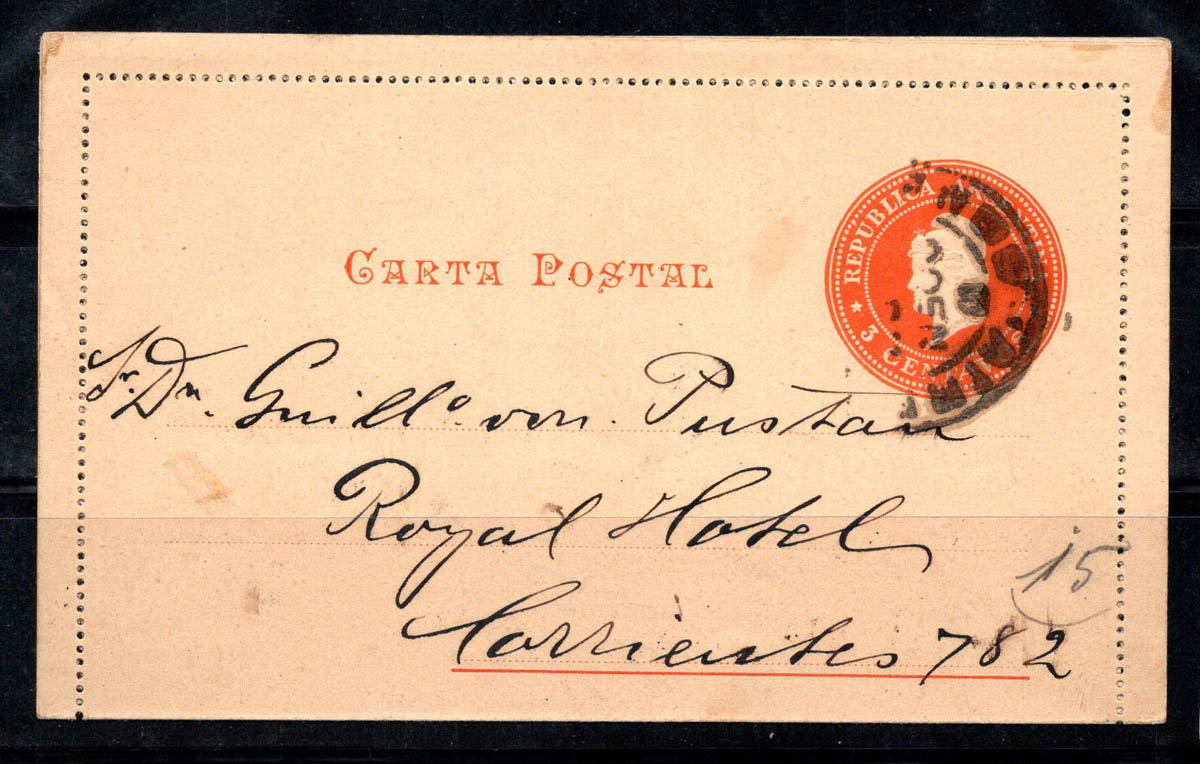 CARTA POSTAL
REPUBLICA
3 CENTAVOS
Sr. Dn. Guillo. von Pustau
Royal Hotel
Corrientes 782
15